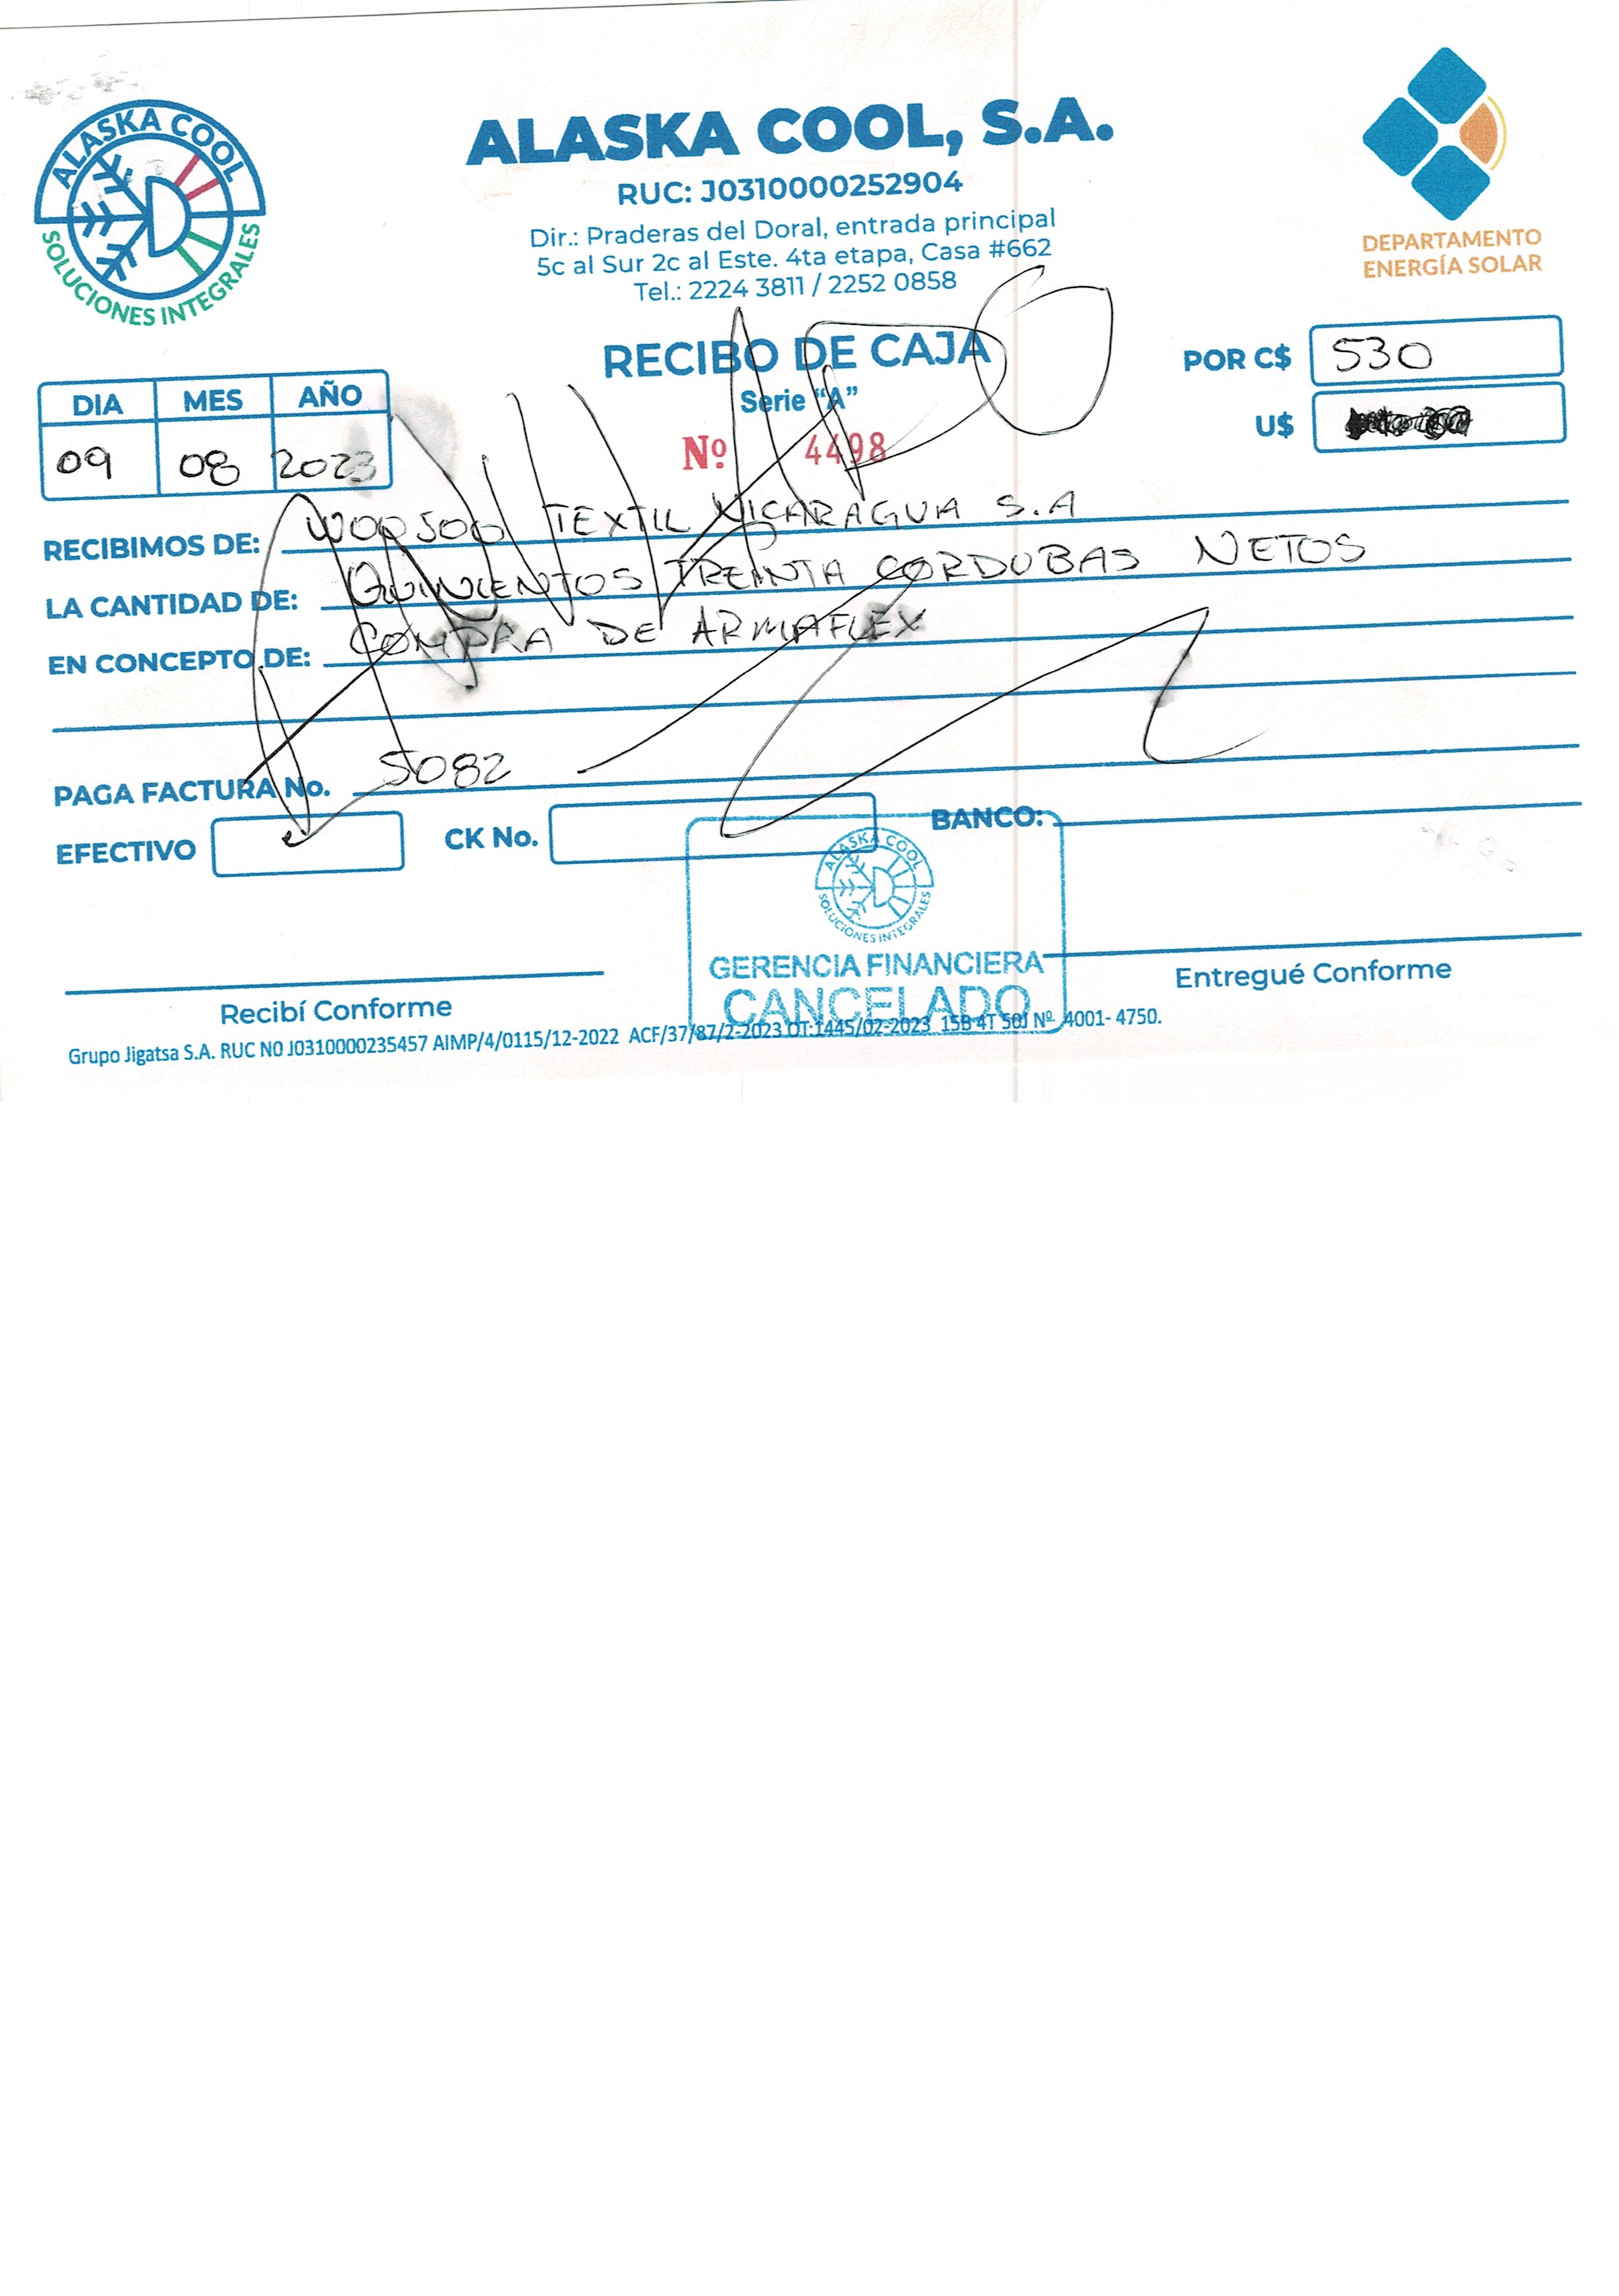 ALASKA COOL
SOLUCIONES INTEGRALES
ALASKA COOL, S.A.
RUC: J0310000252904
Dir.: Praderas del Doral, entrada principal
5c al Sur 2c al Este. 4ta etapa, Casa #662
Tel.: 2224 3811 / 2252 0858
DEPARTAMENTO
ENERGÍA SOLAR
RECIBO DE CAJA
Serie "A"
Nº 4498
POR C$ 530
U$
DIA MES AÑO
09 08 2023
RECIBIMOS DE: WOOSOO TEXTIL NICARAGUA S.A
LA CANTIDAD DE: QUINIENTOS TREINTA CORDOBAS NETOS
EN CONCEPTO DE: COMPRA DE ARMAFLEX
PAGA FACTURA No. 5082
EFECTIVO CK No. BANCO:
ALASKA COOL
SOLUCIONES INTEGRALES
GERENCIA FINANCIERA
CANCELADO
Recibí Conforme
Entregué Conforme
Grupo Jigatsa S.A. RUC N0 J0310000235457 AIMP/4/0115/12-2022 ACF/37/87/2-2023 OT:1445/02-2023 15B 4T 50J Nº 4001- 4750.